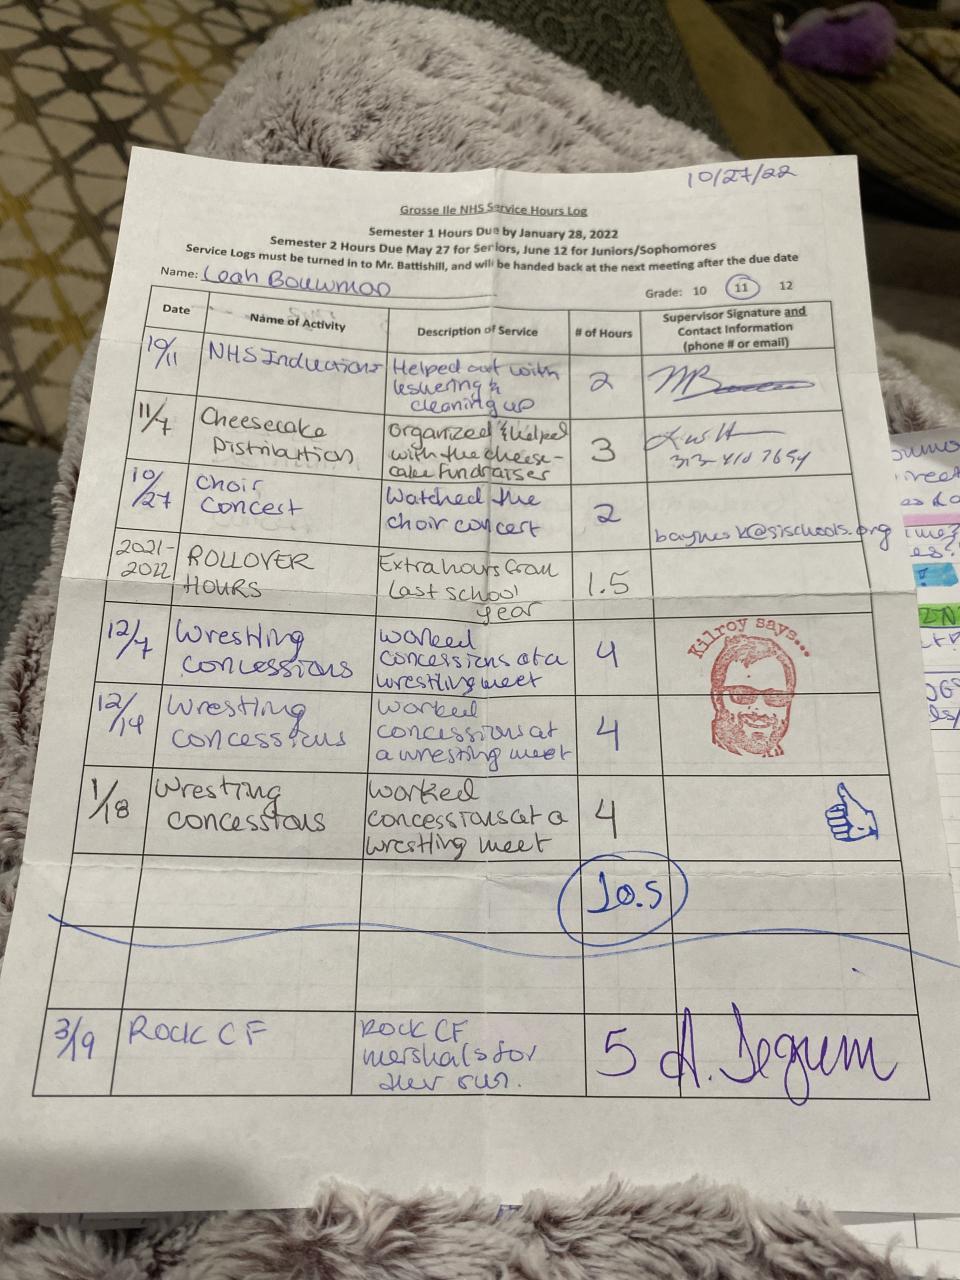 10/27/22
Grosse Ile NHS Service Hours Log
Semester 1 Hours Due by January 28, 2022
Semester 2 Hours Due May 27 for Seniors, June 12 for Juniors/Sophomores
Service Logs must be turned in to Mr. Battishill, and will be handed back at the next meeting after the due date
Name: Leah Bouwman
Grade: 10 11 12
Date
Name of Activity
Description of Service
# of Hours
Supervisor Signature and
Contact Information
(phone # or email)
10/11
NHS Inductions
Helped out with
ushering &
cleaning up
2
11/7
Cheesecake
Distribution
Organized & helped
with the cheese-
cake fundraiser
3
313 410 7654
10/27
Choir
Concert
Watched the
choir concert
2
baynesk@gischools.org
2021-
2022
ROLLOVER
HOURS
Extra hours from
last school
year
1.5
12/7
Wrestling
concessions
worked
concessions at a
wrestling meet
4
Kilroy says...
12/14
Wrestling
concessions
worked
concessions at
a wresting meet
4
1/18
Wresting
concessions
worked
concessions at a
wrestling meet
4
10.5
3/19
ROCK CF
ROCK CF
mershals for
their run.
5
A. Segum